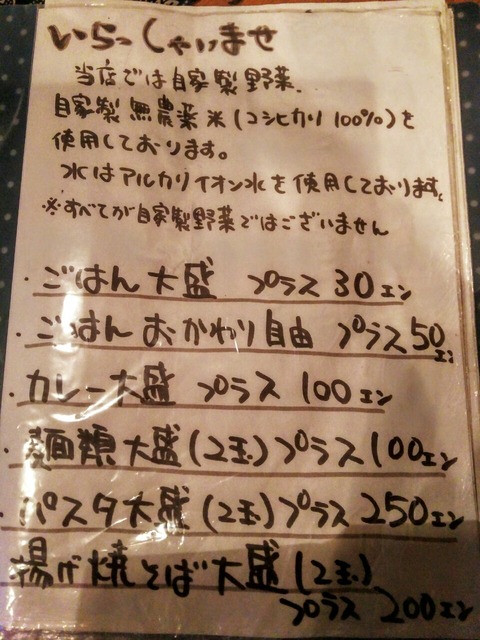 いらっしゃいませ
当店では自家製野菜、
自家製 無農薬米(コシヒカリ 100%)を
使用しております。
水はアルカリイオン水を使用しております。
※すべてが自家製野菜ではございません
・ごはん 大盛 プラス 30エン
・ごはん おかわり自由 プラス50エン
・カレー大盛 プラス 100エン
・麺類大盛(2玉)プラス100エン
・パスタ大盛(2玉)プラス250エン
・揚げ焼そば大盛(2玉)
プラス 200エン